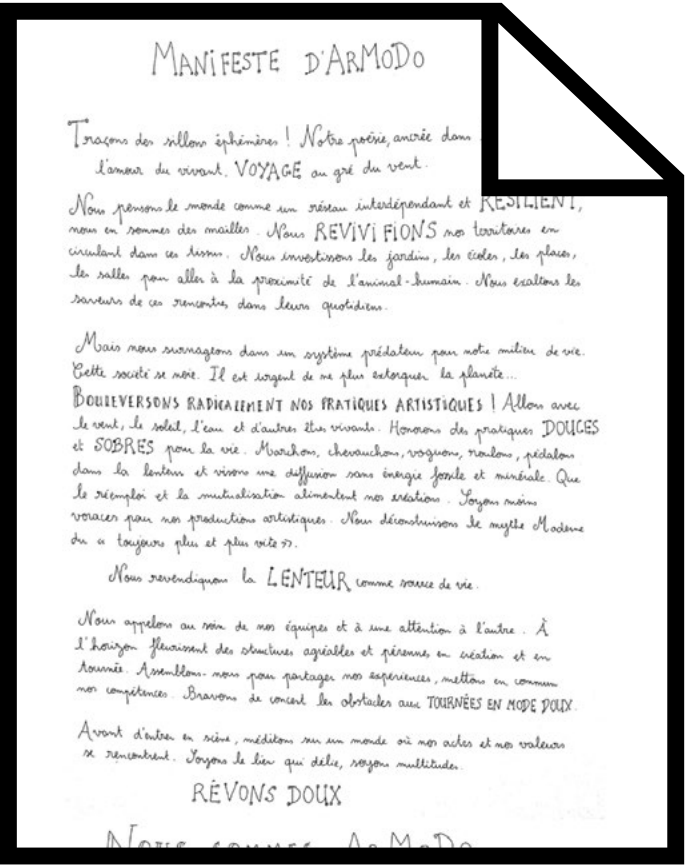 MANIFESTE D'ARMODO
Traçons des sillons éphémères ! Notre poésie, ancrée dans
l'amour du vivant, VOYAGE au gré du vent.
Nous pensons le monde comme un réseau interdépendant et RÉSILIENT,
nous en sommes des mailles. Nous REVIVIFIONS nos territoires en
circulant dans ces tissus. Nous investissons les jardins, les écoles, les places,
les salles pour aller à la proximité de l'animal-humain. Nous exaltons les
saveurs de ces rencontres dans leurs quotidiens.
Mais nous surnageons dans un système prédateur pour notre milieu de vie.
Cette société se noie. Il est urgent de ne plus extorquer la planète...
BOULEVERSONS RADICALEMENT NOS PRATIQUES ARTISTIQUES ! Allons avec
le vent, le soleil, l'eau et d'autres êtres vivants. Honorons des pratiques DOUCES
et SOBRES pour la vie. Marchons, chevauchons, voguons, roulons, pédalons
dans la lenteur et visons une diffusion sans énergie fossile et minérale. Que
le réemploi et la mutualisation alimentent nos créations. Soyons moins
voraces pour nos productions artistiques. Nous déconstruisons le mythe Moderne
du « toujours plus et plus vite ».
Nous revendiquons la LENTEUR comme source de vie.
Nous appelons au soin de nos équipes et à une attention à l'autre. À
l'horizon fleurissent des structures agréables et pérennes en création et en
tournée. Assemblons-nous pour partager nos expériences, mettons en commun
nos compétences. Bravons de concert les obstacles aux TOURNÉES EN MODE DOUX.
Avant d'entrer en scène, méditons sur un monde où nos actes et nos valeurs
se rencontrent. Soyons le lien qui délie, soyons multitudes.
RÊVONS DOUX
NOUS SOMMES ARMODO